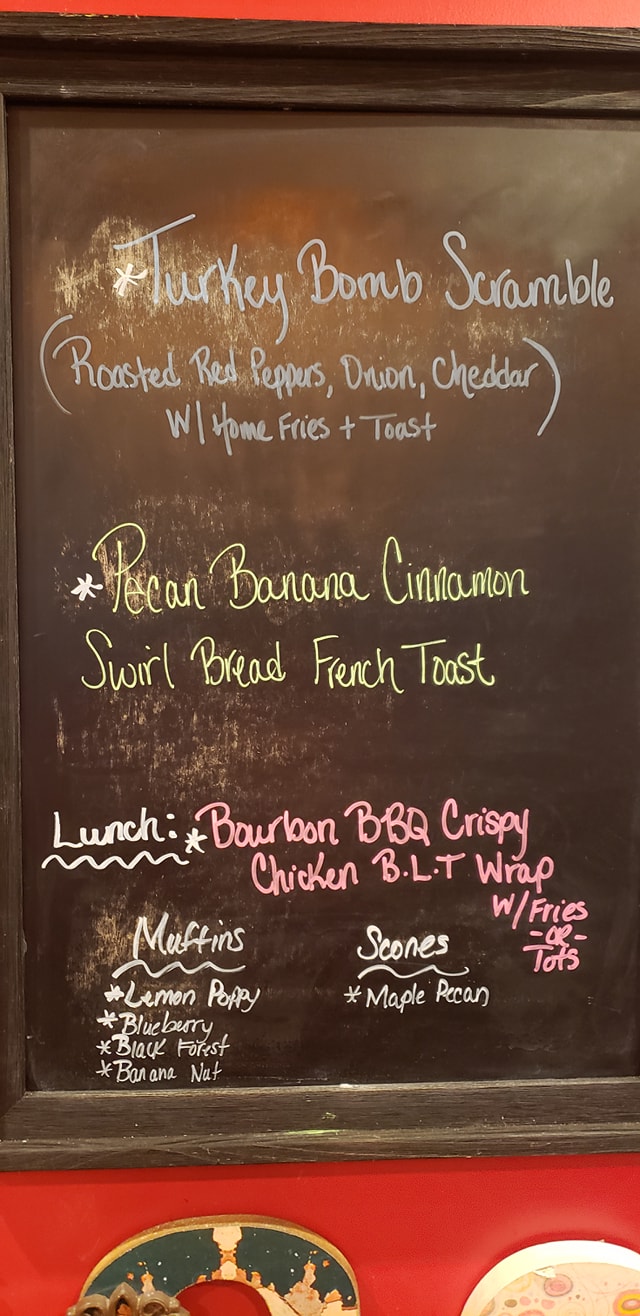 *Turkey Bomb Scramble
(Roasted Red Peppers, Onion, Cheddar)
W/ Home Fries + Toast
*Pecan Banana Cinnamon
Swirl Bread French Toast
Lunch: *Bourbon BBQ Crispy
Chicken B.L.T Wrap
W/ Fries
-OR-
Tots
Muffins
*Lemon Poppy
*Blueberry
*Black Forest
*Banana Nut
Scones
*Maple Pecan